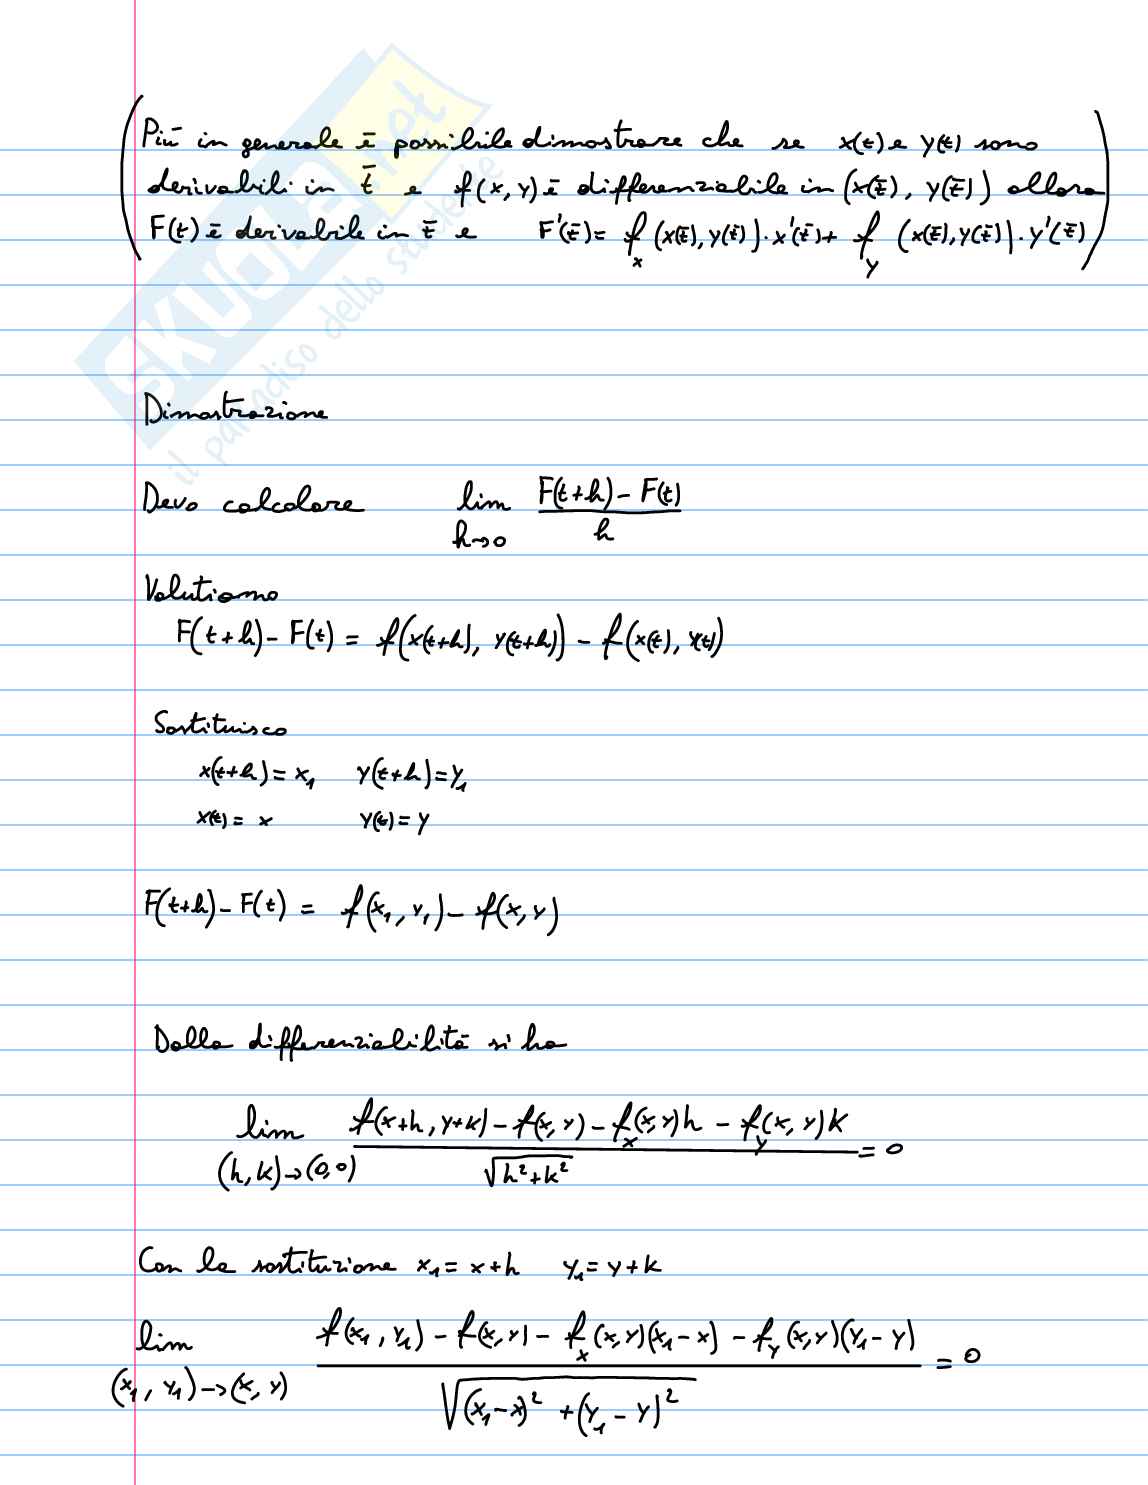 (Più in generale è possibile dimostrare che se x(t) e y(t) sono
derivabili in t̄ e f(x, y) è differenziabile in (x(t̄), y(t̄)) allora
F(t) è derivabile in t̄ e F'(t̄) = f_x (x(t̄), y(t̄)) · x'(t̄) + f_y (x(t̄), y(t̄)) · y'(t̄))
Dimostrazione
Devo calcolare lim_{h→0} (F(t+h) - F(t))/h
Valutiamo
F(t+h) - F(t) = f(x(t+h), y(t+h)) - f(x(t), y(t))
Sostituisco
x(t+h) = x₁ y(t+h) = y₁
x(t) = x y(t) = y
F(t+h) - F(t) = f(x₁, y₁) - f(x, y)
Dalla differenziabilità si ha
lim_{(h, k)→(0,0)} (f(x+h, y+k) - f(x, y) - f_x(x, y)h - f_y(x, y)k)/√(h²+k²) = 0
Con la sostituzione x₁ = x+h y₁ = y+k
lim_{(x₁, y₁)→(x, y)} (f(x₁, y₁) - f(x, y) - f_x(x, y)(x₁-x) - f_y(x, y)(y₁-y))/√((x₁-x)² + (y₁-y)²) = 0
SKUOLA.net
il paradiso dello studente